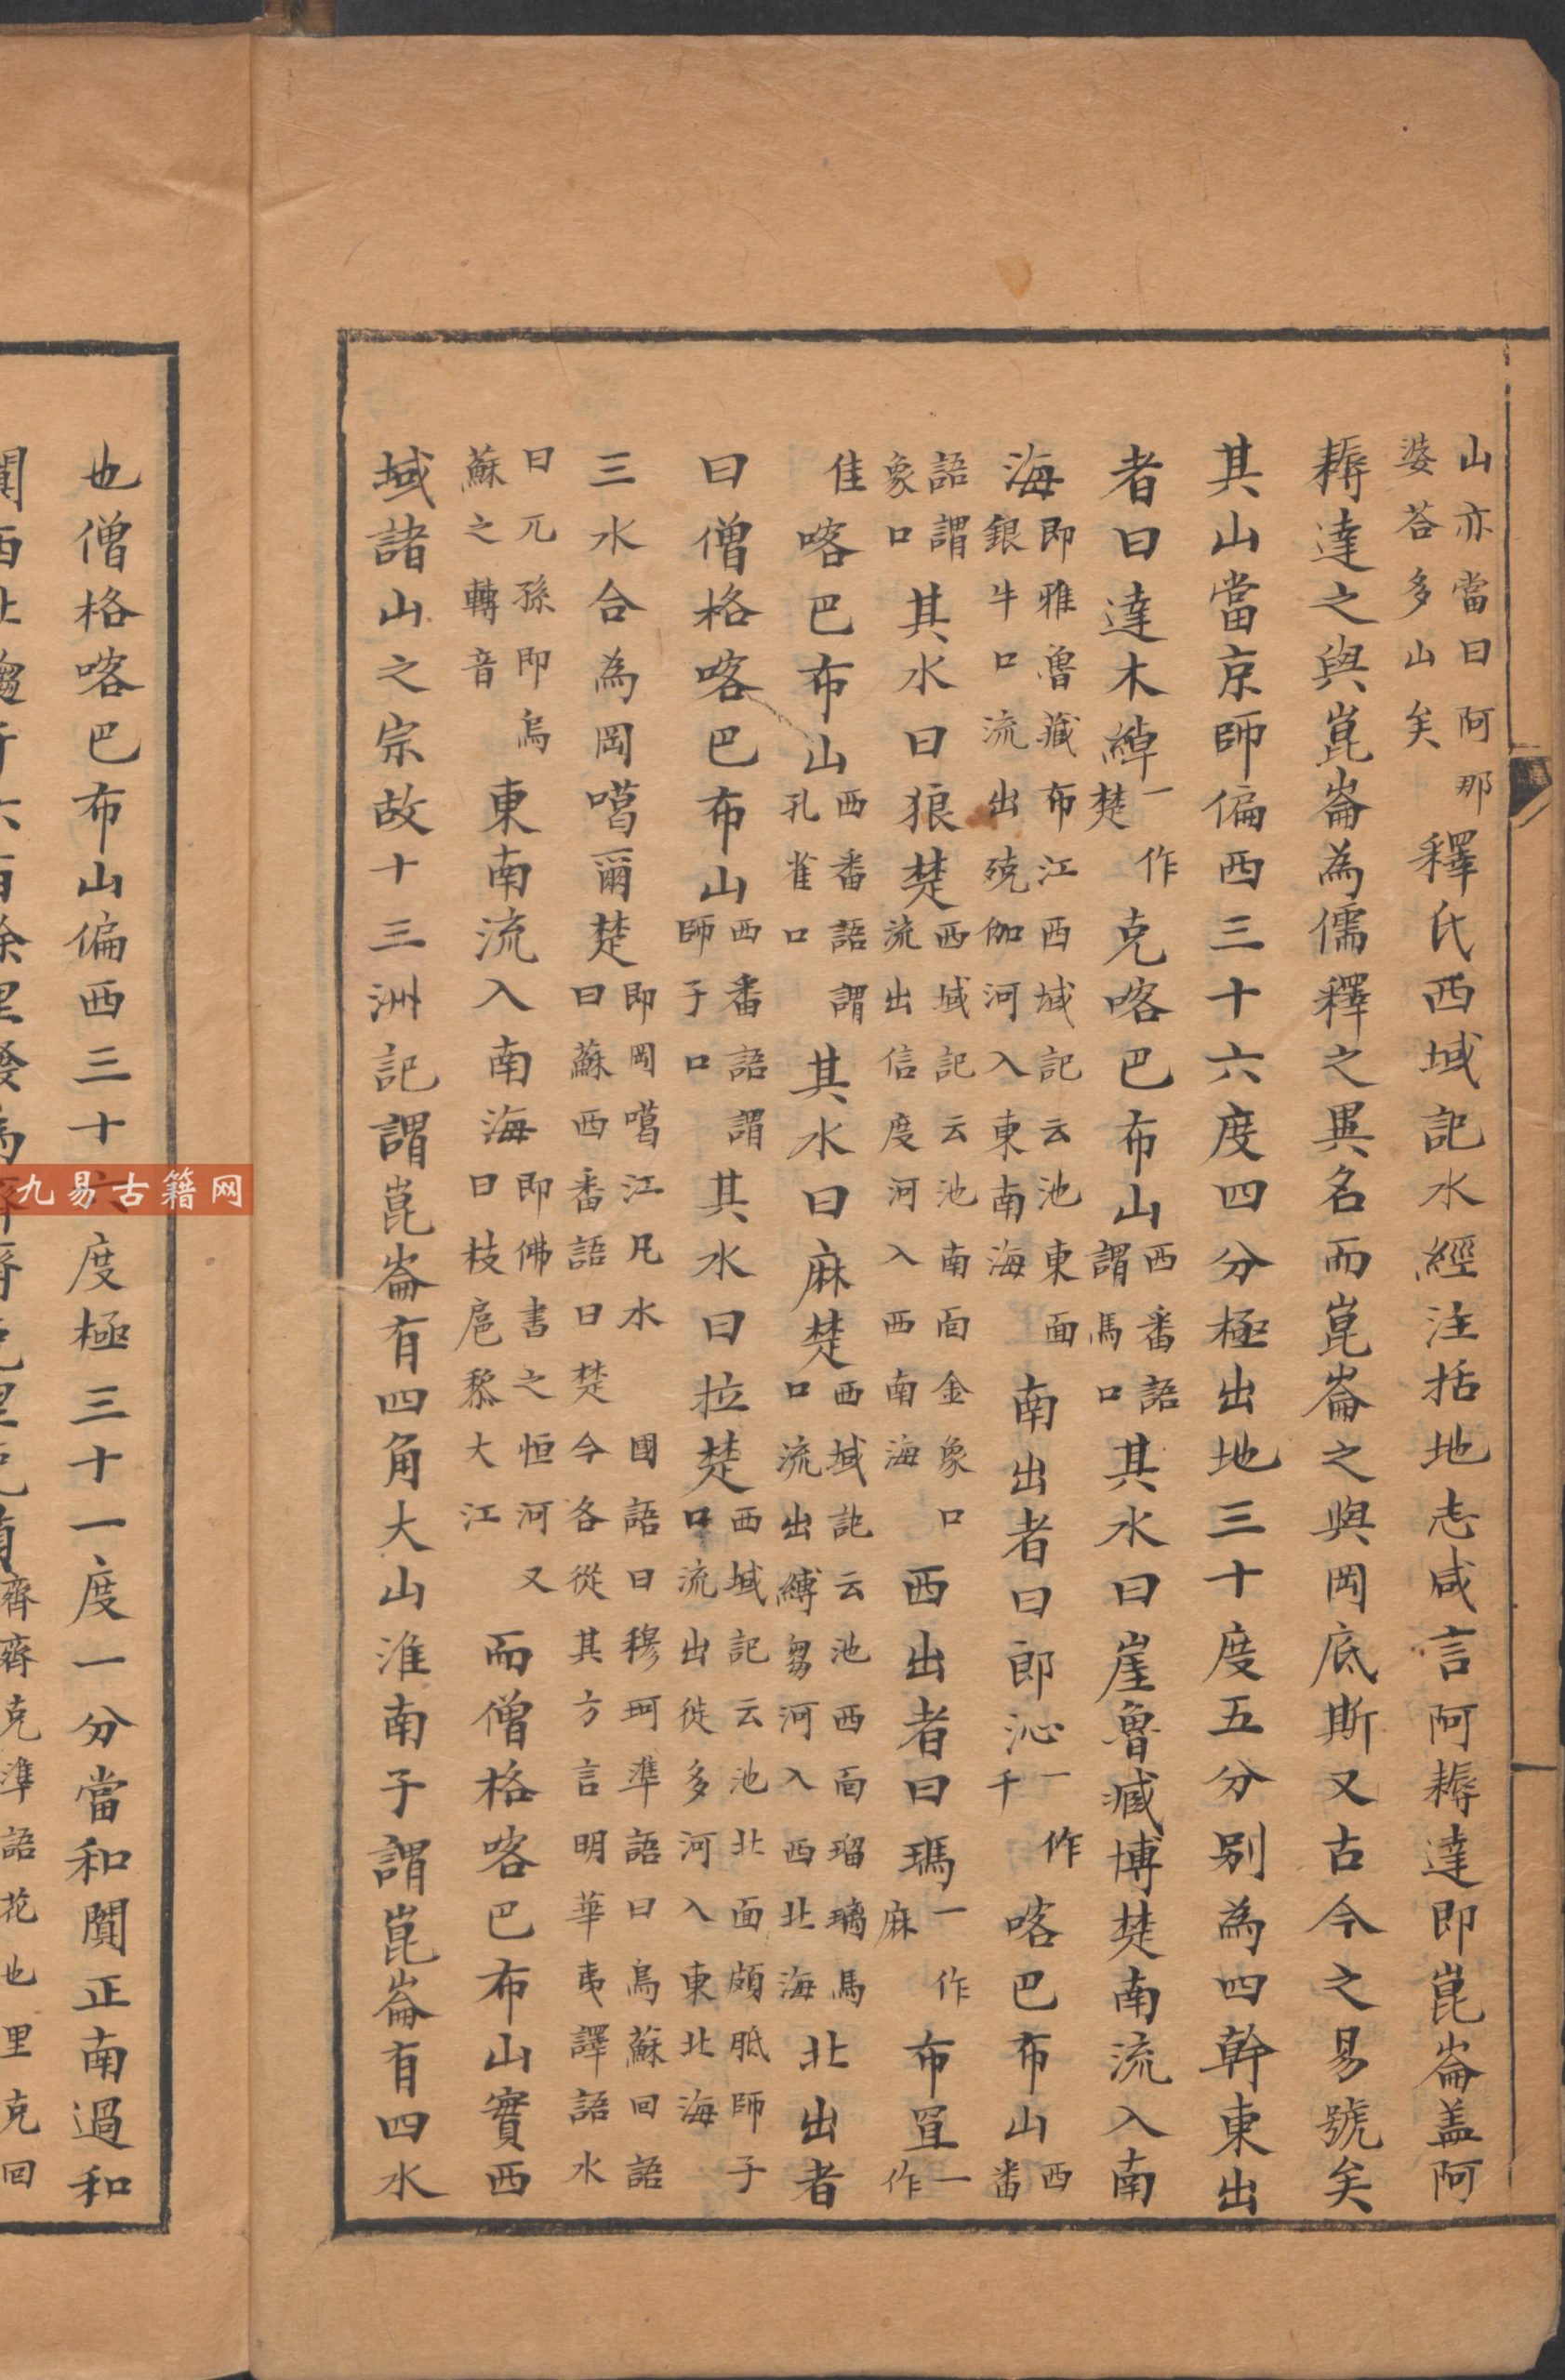 山亦當曰阿那
婆荅多山矣
釋氏西域記水經注括地志咸言阿耨達即崑崙盖阿
耨達之與崑崙為儒釋之異名而崑崙之與岡底斯又古今之易號矣
其山當京師偏西三十六度四分極出地三十度五分別為四幹東出
者曰達木綽
一作
楚
克喀巴布山
西番語
謂馬口
其水曰崖魯藏博楚南流入南
海
即雅魯藏布江西域記云池東面
銀牛口流出殑伽河入東南海
南出者曰郎沁
一作
千
喀巴布山
西
番
語謂
象口
其水曰狼楚
西域記云池南面金象口
流出信度河入西南海
西出者曰瑪
一作
麻
布罝
一
作
佳
喀巴布山
西番語謂
孔雀口
其水曰麻楚
西域記云池西面瑠璃馬
口流出縛芻河入西北海
北出者
曰僧格喀巴布山
西番語謂
師子口
其水曰拉楚
西域記云池北面頗胝師子
口流出徙多河入東北海
三水合為岡噶爾楚
即岡噶江凡水國語曰穆珂準語曰烏蘇回語
曰蘇西番語曰楚今各從其方言明華夷譯語水
曰兀孫即烏
蘇之轉音
東南流入南海
即佛書之恒河又
曰枝扈黎大江
而僧格喀巴布山實西
域諸山之宗故十三洲記謂崑崙有四角大山淮南子謂崑崙有四水
也僧格喀巴布山偏西三十六度極三十一度一分當和闐正南過和
九易古籍网